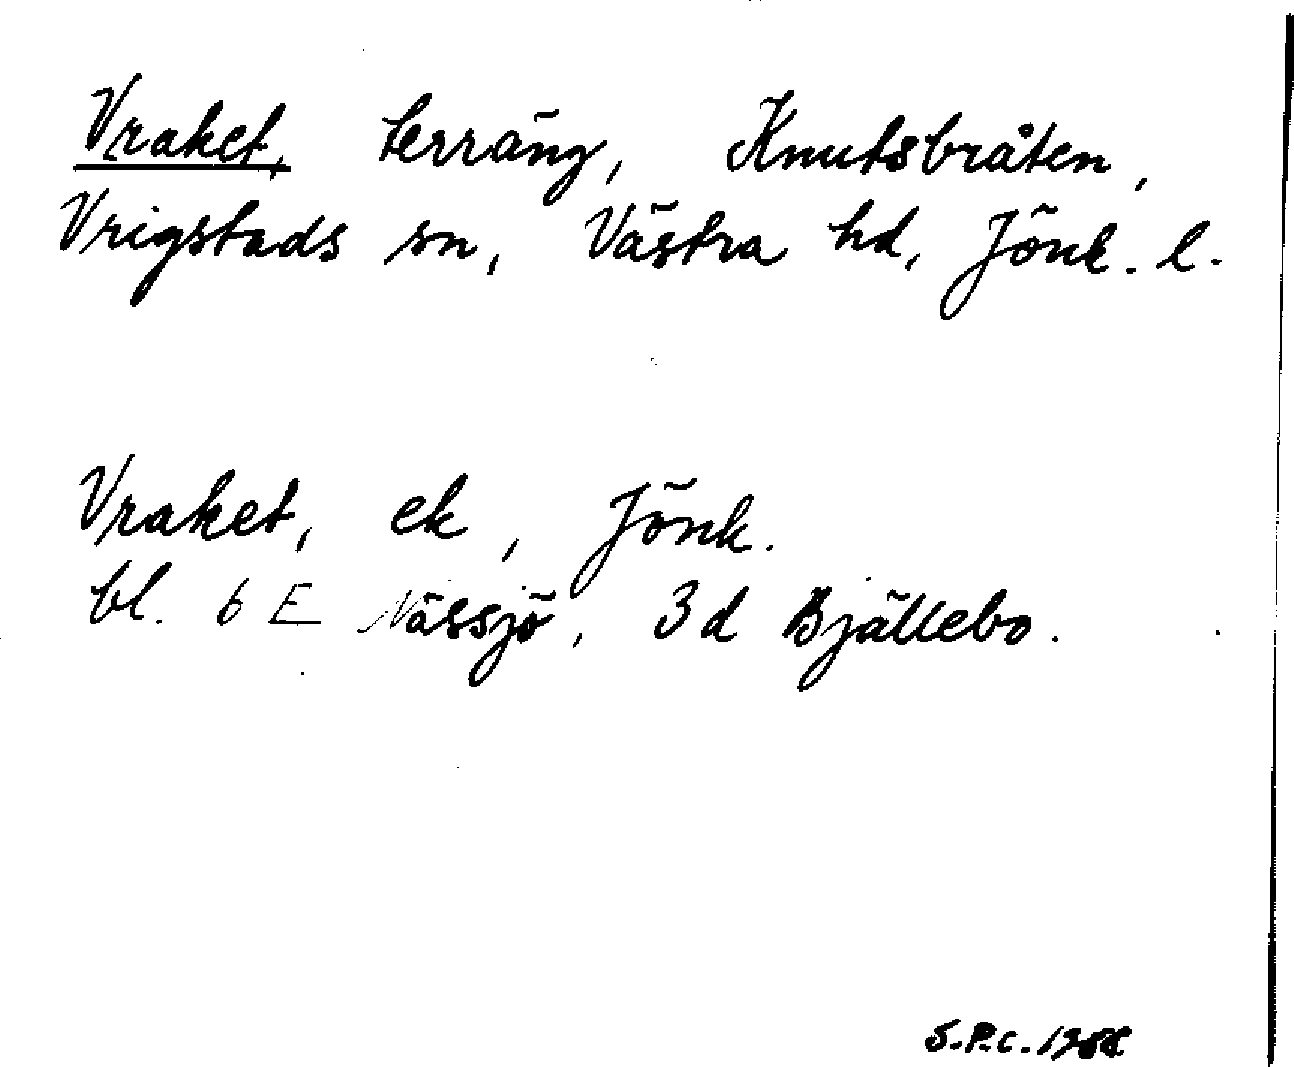 Vraket, terräng, Knutsbråten,
Vrigstads sn, Västra hd, Jönk. l.
Vraket, ek, Jönk.
bl. 6 E Nässjö, 3d Bjällebo.
S.P.C.